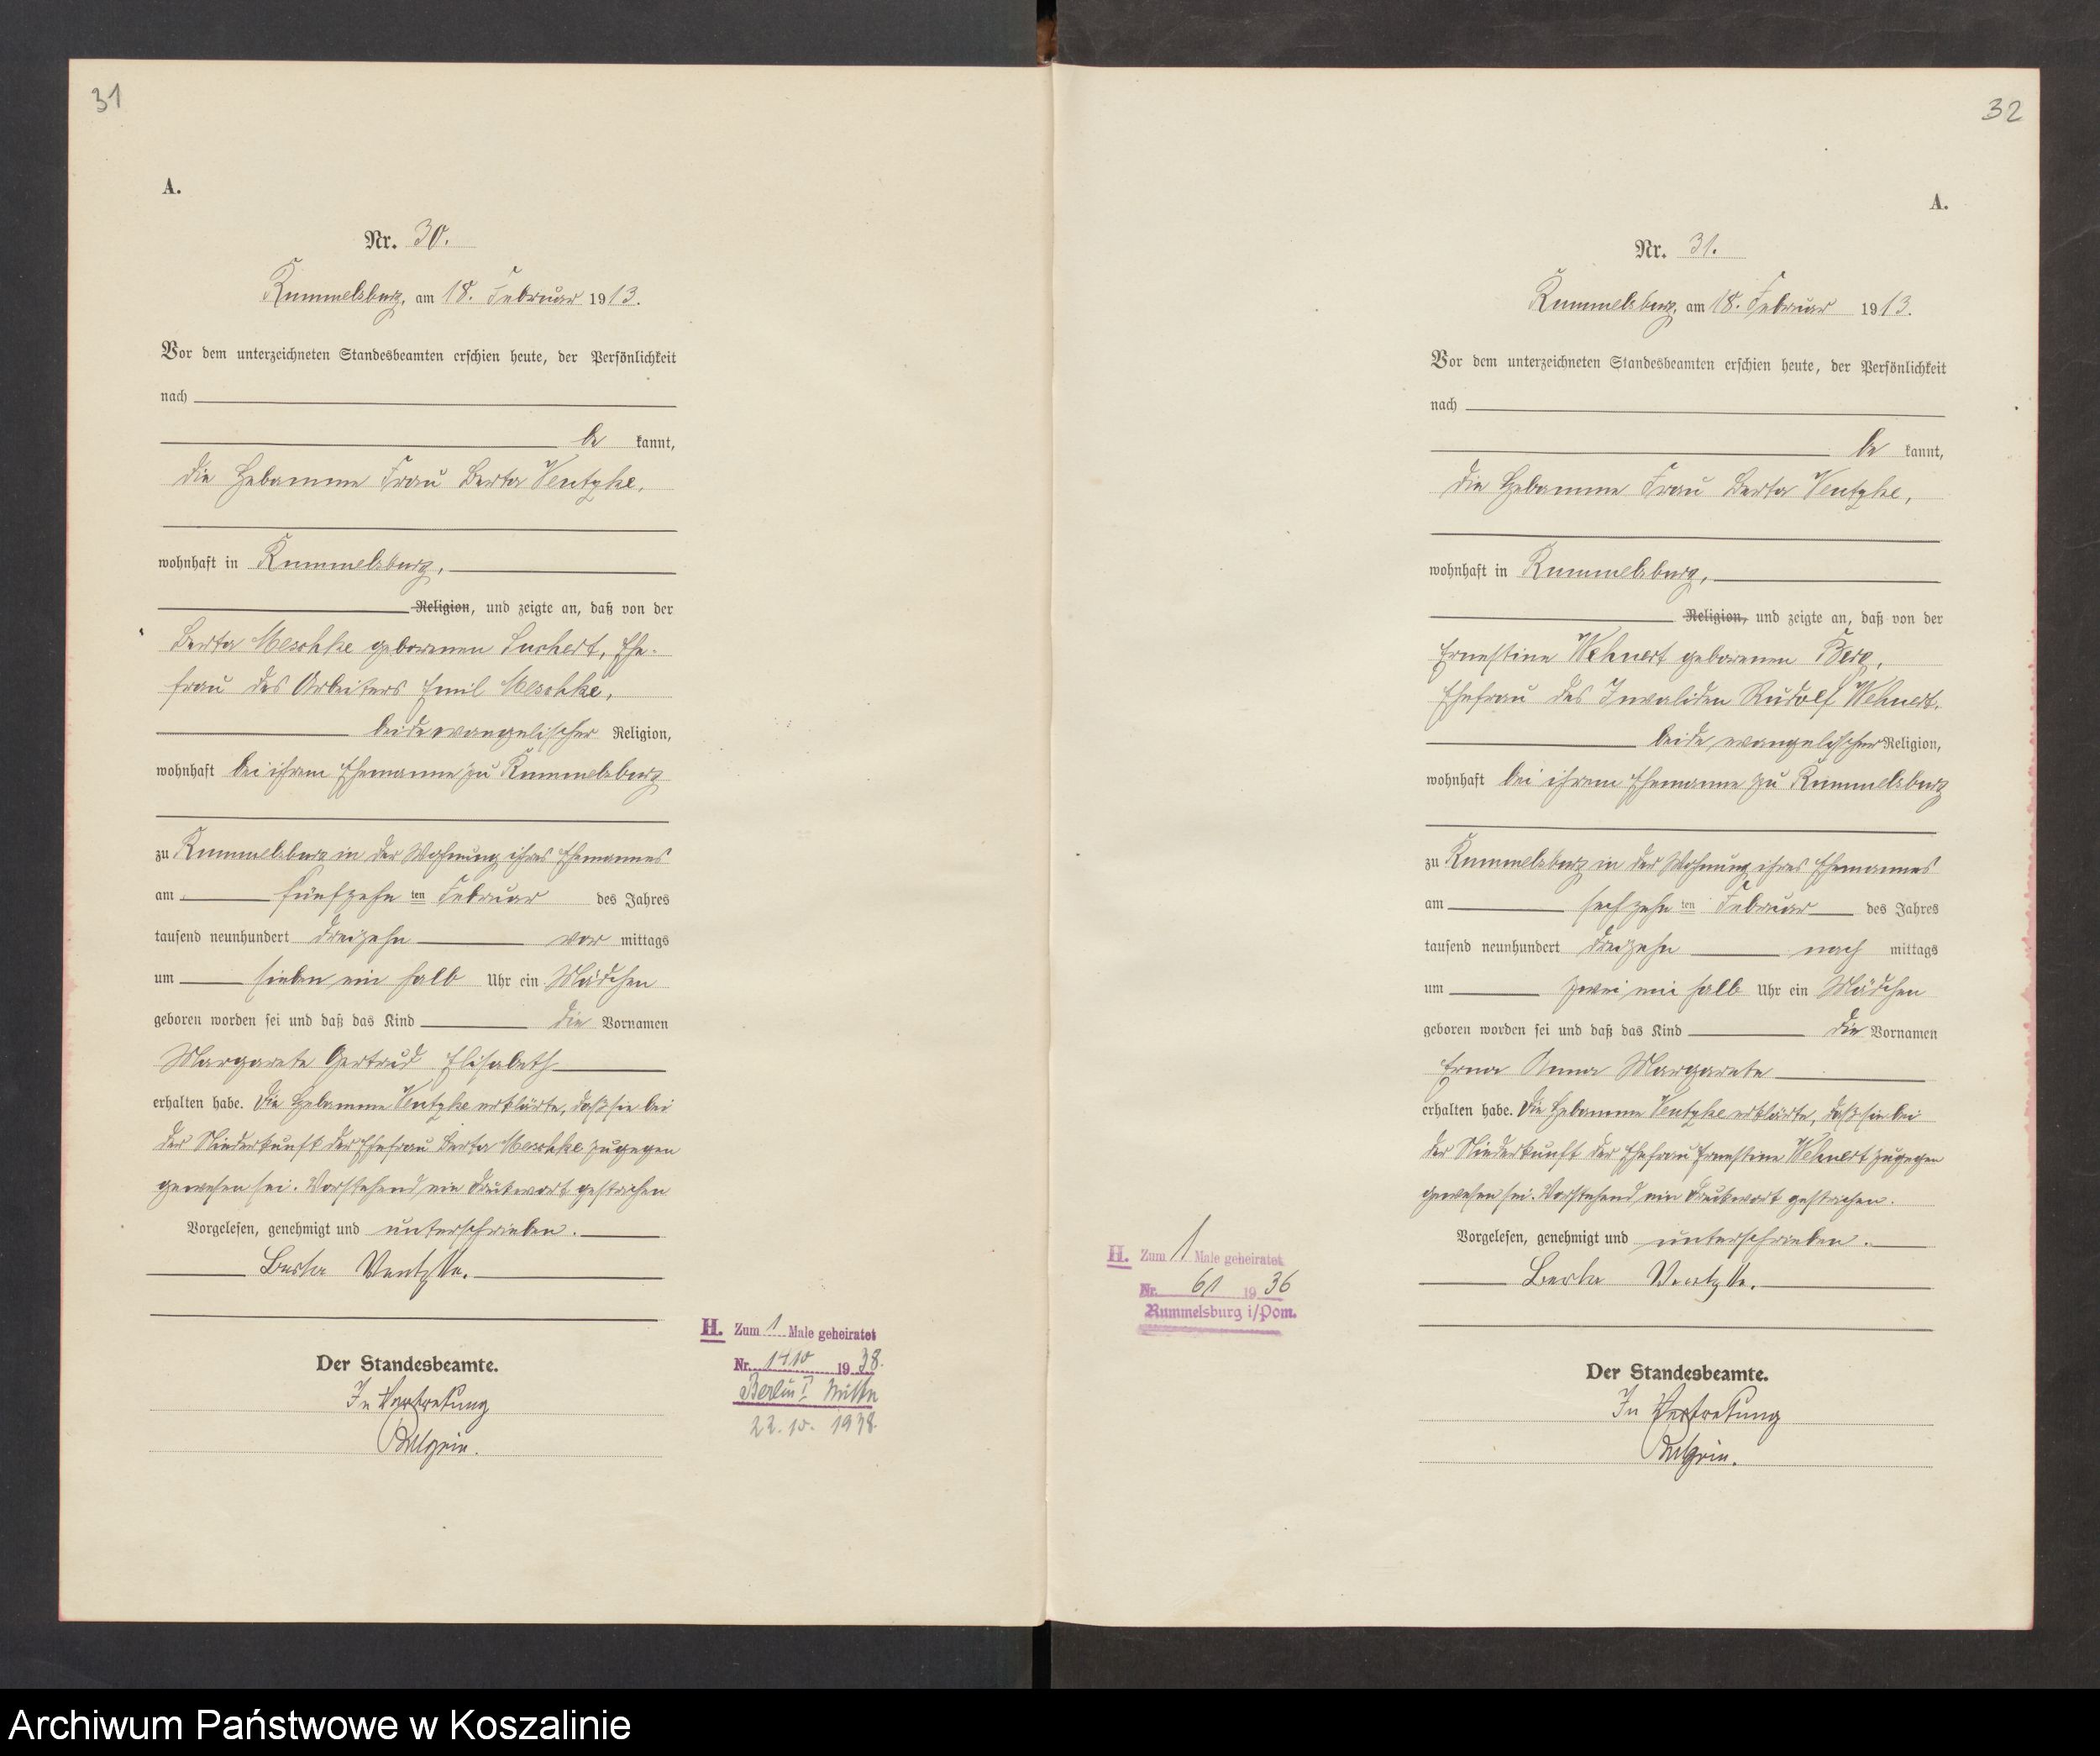 31
A.
Nr. 30.
Rummelsburg, am 18. Februar 1913.
Vor dem unterzeichneten Standesbeamten erschien heute, der Persönlichkeit
nach
be kannt,
die Hebamme Frau Berta Ventzke,
wohnhaft in Rummelsburg,
Religion, und zeigte an, daß von der
Berta Meschke geborenen Suchert, Ehe-
frau des Arbeiters Emil Meschke,
beide evangelischer Religion,
wohnhaft bei ihrem Ehemanne zu Rummelsburg
zu Rummelsburg in der Wohnung ihres Ehemannes
am fünfzehn ten Februar des Jahres
tausend neunhundert dreizehn vor mittags
um sieben ein halb Uhr ein Mädchen
geboren worden sei und daß das Kind die Vornamen
Margarete Gertrud Elisabeth
erhalten habe. Die Hebamme Ventzke erklärte, daß sie bei
der Niederkunft der Ehefrau Berta Meschke zugegen
gewesen sei. Vorstehend ein Druckwort gestrichen
Vorgelesen, genehmigt und unterschrieben.
Berta Ventzke.
Der Standesbeamte.
In Vertretung
H. Zum 1 Male geheiratet
Nr. 1410 1938.
Berlin I Mitte
22.10. 1938.
32
A.
Nr. 31.
Rummelsburg, am 18. Februar 1913.
Vor dem unterzeichneten Standesbeamten erschien heute, der Persönlichkeit
nach
be kannt,
die Hebamme Frau Berta Ventzke,
wohnhaft in Rummelsburg,
Religion, und zeigte an, daß von der
Ernestine Wehnert geborenen Berg,
Ehefrau des Invaliden Rudolf Wehnert,
beide evangelischer Religion,
wohnhaft bei ihrem Ehemanne zu Rummelsburg
zu Rummelsburg in der Wohnung ihres Ehemannes
am sechzehn ten Februar des Jahres
tausend neunhundert dreizehn nach mittags
um zwei ein halb Uhr ein Mädchen
geboren worden sei und daß das Kind die Vornamen
Erna Anna Margarete
erhalten habe. Die Hebamme Ventzke erklärte, daß sie bei
der Niederkunft der Ehefrau Ernestine Wehnert zugegen
gewesen sei. Vorstehend ein Druckwort gestrichen.
Vorgelesen, genehmigt und unterschrieben.
Berta Ventzke.
Der Standesbeamte.
In Vertretung
H. Zum 1 Male geheiratet
Nr. 61 1936
Rummelsburg i/Pom.
Archiwum Państwowe w Koszalinie